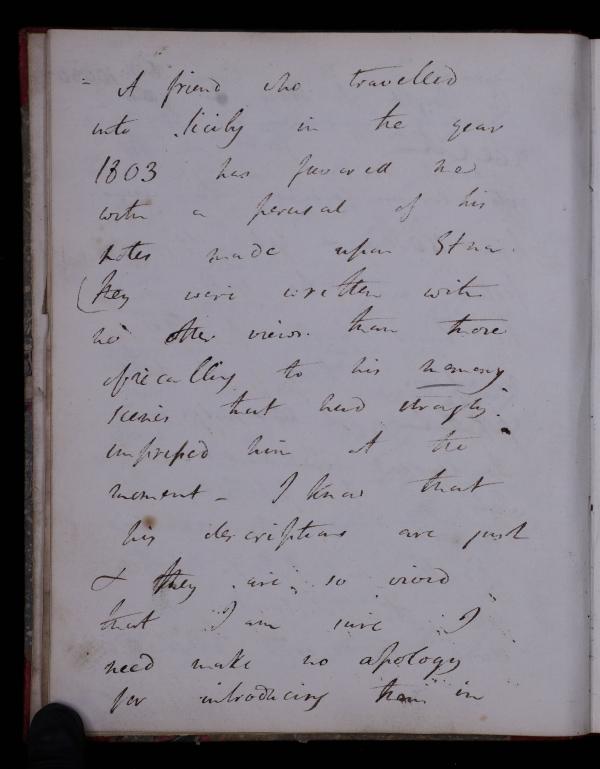 - A friend who travelled
into Sicily in the year
1803 has favored me
with a perusal of his
notes made upon Etna.
(they were written with
no other views than those
of recalling to his memory
scenes that had strongly
impressed him at the
moment - I know that
his descriptions are just
& they are so vivid
that I am sure I
need make no apology
for introducing them in